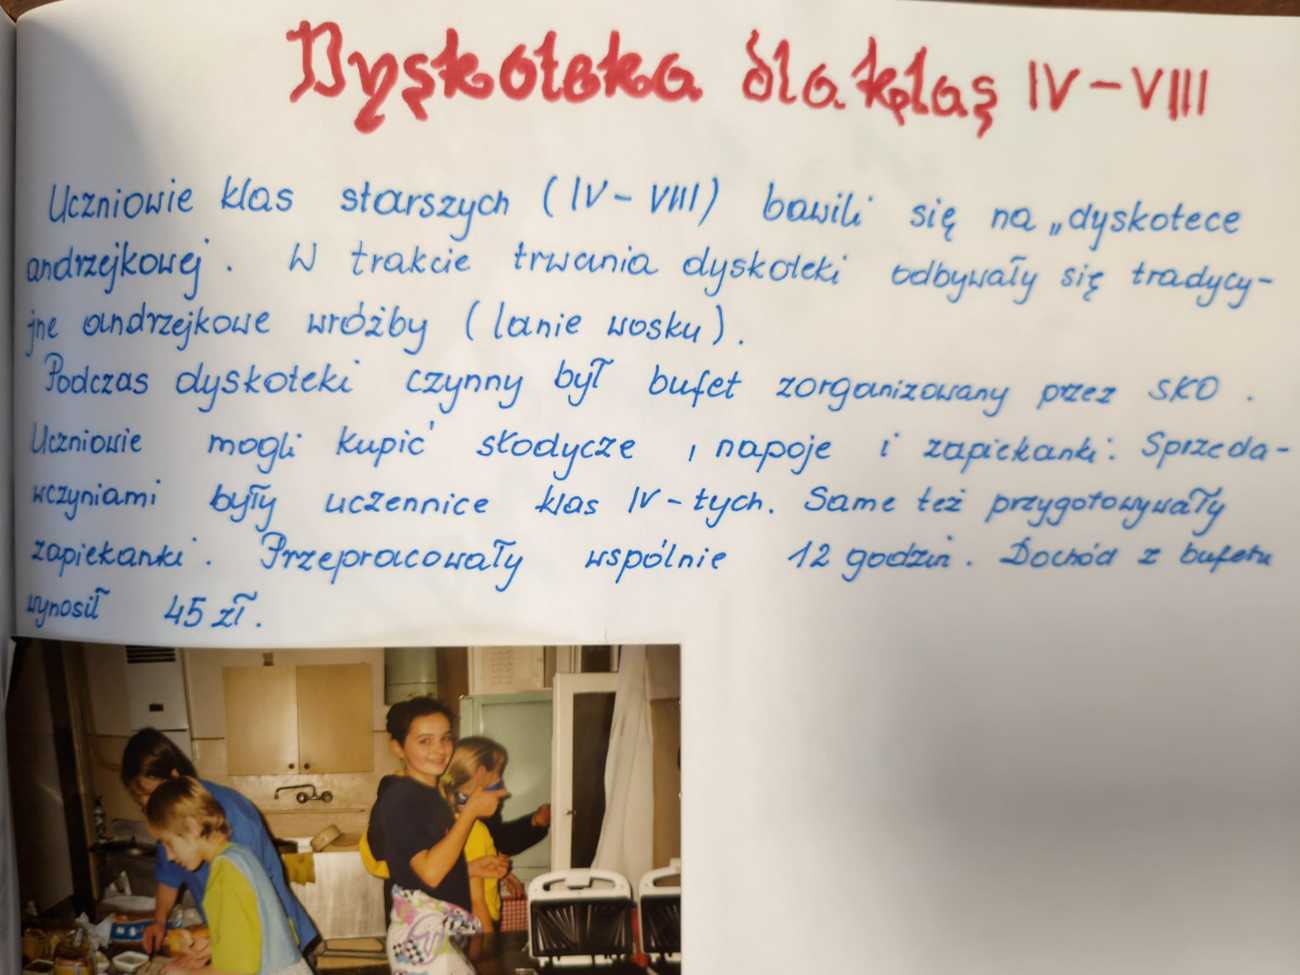 Dyskoteka dla klas IV-VIII
Uczniowie klas starszych (IV-VIII) bawili się na „dyskotece
andrzejkowej. W trakcie trwania dyskoteki odbywały się tradycy-
jne andrzejkowe wróżby (lanie wosku).
Podczas dyskoteki czynny był bufet zorganizowany przez SKO.
Uczniowie mogli kupić słodycze, napoje i zapiekanki. Sprzeda-
wczyniami były uczennice klas IV-tych. Same też przygotowywały
zapiekanki. Przepracowały wspólnie 12 godzin. Dochód z bufetu
wynosił 45 zł.